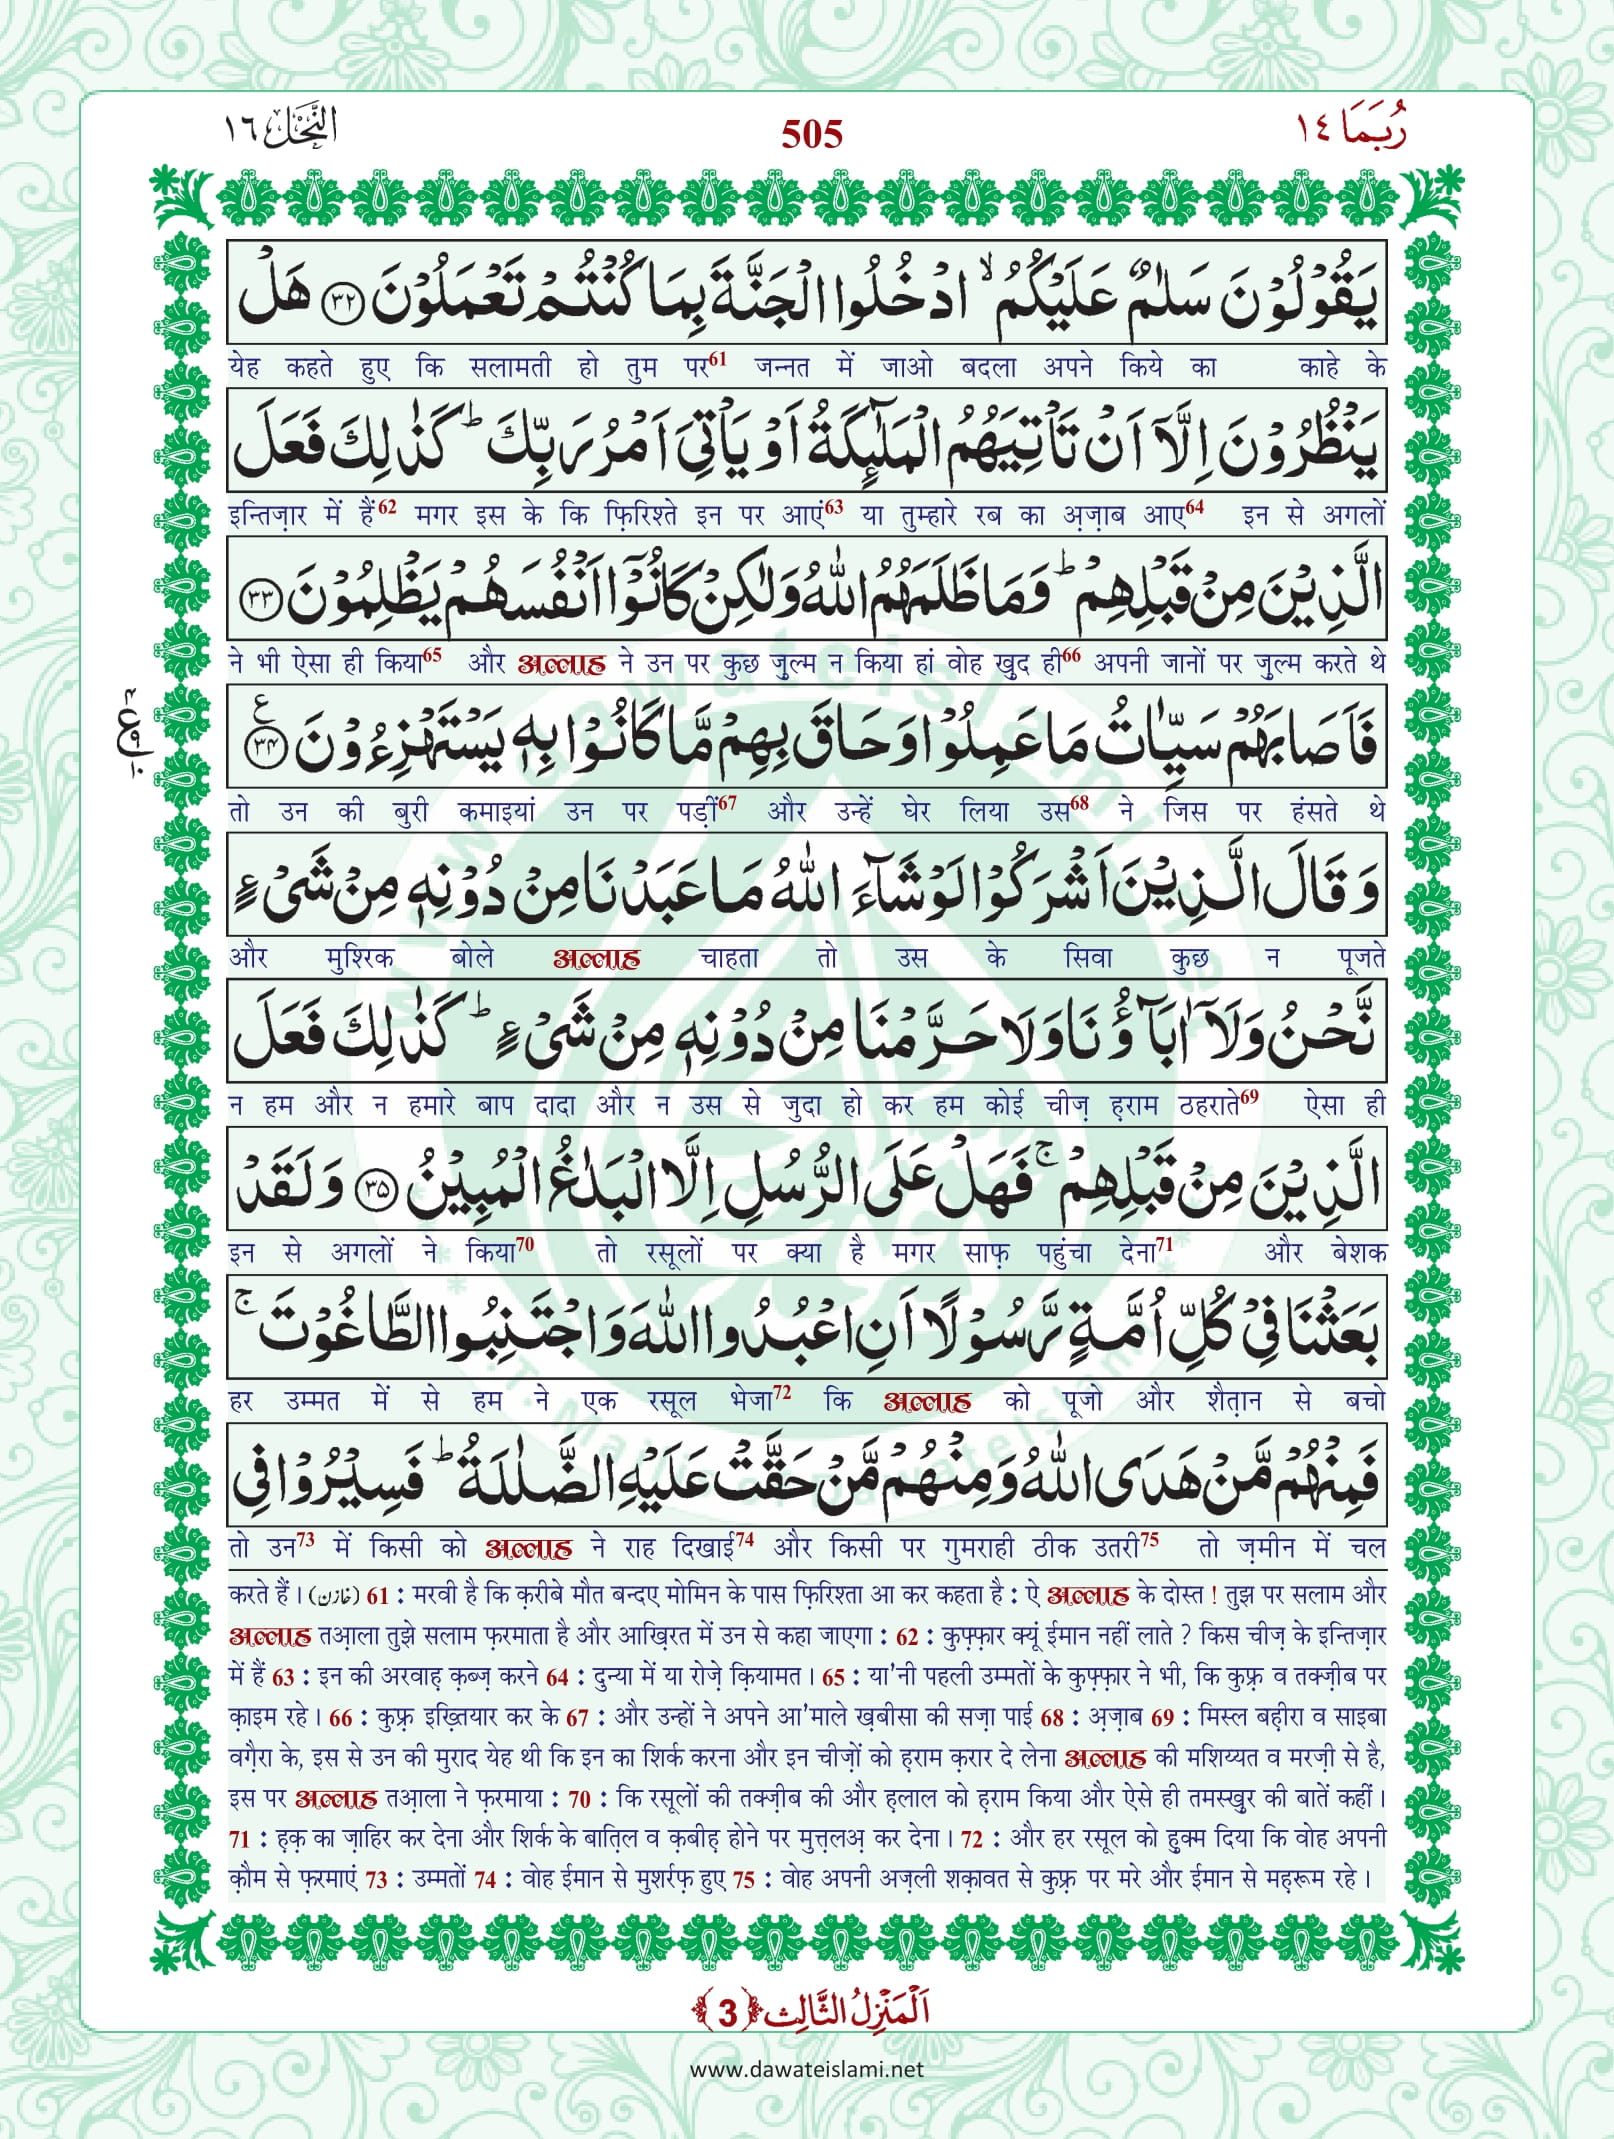 النَّحْل ١٦
505
رُبَمَا ١٤
يَقُوْلُوْنَ سَلٰمٌ عَلَيْكُمُ ۙ ادْخُلُوا الْجَنَّةَ بِمَا كُنْتُمْ تَعْمَلُوْنَ ﴿۳۲﴾ هَلْ
येह कहते हुए कि सलामती हो तुम पर61 जन्नत में जाओ बदला अपने किये का काहे के
يَنْظُرُوْنَ اِلَّاۤ اَنْ تَاْتِيَهُمُ الْمَلٰٓئِكَةُ اَوْ يَاْتِيَ اَمْرُ رَبِّكَ ؕ كَذٰلِكَ فَعَلَ
इन्तिज़ार में हैं62 मगर इस के कि फ़िरिश्ते इन पर आएं63 या तुम्हारे रब का अ़ज़ाब आए64 इन से अगलों
الَّذِيْنَ مِنْ قَبْلِهِمْ ؕ وَمَا ظَلَمَهُمُ اللّٰهُ وَلٰكِنْ كَانُوْۤا اَنْفُسَهُمْ يَظْلِمُوْنَ ﴿۳۳﴾
ने भी ऐसा ही किया65 और अल्लाह ने उन पर कुछ ज़ुल्म न किया हां वोह ख़ुद ही66 अपनी जानों पर ज़ुल्म करते थे
فَاَصَابَهُمْ سَيِّاٰتُ مَا عَمِلُوْا وَحَاقَ بِهِمْ مَّا كَانُوْا بِهٖ يَسْتَهْزِءُوْنَ ﴿۳۴﴾ ع
तो उन की बुरी कमाइयां उन पर पड़ीं67 और उन्हें घेर लिया उस68 ने जिस पर हंसते थे
وَقَالَ الَّذِيْنَ اَشْرَكُوْا لَوْ شَآءَ اللّٰهُ مَا عَبَدْنَا مِنْ دُوْنِهٖ مِنْ شَیْءٍ
और मुश्रिक बोले अल्लाह चाहता तो उस के सिवा कुछ न पूजते
نَّحْنُ وَلَاۤ اٰبَآؤُنَا وَلَا حَرَّمْنَا مِنْ دُوْنِهٖ مِنْ شَیْءٍ ؕ كَذٰلِكَ فَعَلَ
न हम और न हमारे बाप दादा और न उस से जुदा हो कर हम कोई चीज़ ह़राम ठहराते69 ऐसा ही
الَّذِيْنَ مِنْ قَبْلِهِمْ ۚ فَهَلْ عَلَى الرُّسُلِ اِلَّا الْبَلٰغُ الْمُبِيْنُ ﴿۳۵﴾ وَلَقَدْ
इन से अगलों ने किया70 तो रसूलों पर क्या है मगर साफ़ पहुंचा देना71 और बेशक
بَعَثْنَا فِیْ كُلِّ اُمَّةٍ رَّسُوْلًا اَنِ اعْبُدُوا اللّٰهَ وَاجْتَنِبُوا الطَّاغُوْتَ ۚ
हर उम्मत में से हम ने एक रसूल भेजा72 कि अल्लाह को पूजो और शैत़ान से बचो
فَمِنْهُمْ مَّنْ هَدَى اللّٰهُ وَمِنْهُمْ مَّنْ حَقَّتْ عَلَيْهِ الضَّلٰلَةُ ؕ فَسِيْرُوْا فِی
तो उन73 में किसी को अल्लाह ने राह दिखाई74 और किसी पर गुमराही ठीक उतरी75 तो ज़मीन में चल
करते हैं। (خازن) 61 : मरवी है कि क़रीबे मौत बन्दए मोमिन के पास फ़िरिश्ता आ कर कहता है : ऐ अल्लाह के दोस्त ! तुझ पर सलाम और
अल्लाह तआ़ला तुझे सलाम फ़रमाता है और आख़िरत में उन से कहा जाएगा : 62 : कुफ़्फ़ार क्यूं ईमान नहीं लाते ? किस चीज़ के इन्तिज़ार
में हैं 63 : इन की अरवाह़ क़ब्ज़ करने 64 : दुन्या में या रोज़े क़ियामत। 65 : या'नी पहली उम्मतों के कुफ़्फ़ार ने भी, कि कुफ़्र व तक्ज़ीब पर
क़ाइम रहे। 66 : कुफ़्र इख़्तियार कर के 67 : और उन्हों ने अपने आ'माले ख़बीसा की सज़ा पाई 68 : अ़ज़ाब 69 : मिस्ल बह़ीरा व साइबा
वग़ैरा के, इस से उन की मुराद येह थी कि इन का शिर्क करना और इन चीज़ों को ह़राम क़रार दे लेना अल्लाह की मशिय्यत व मरज़ी से है,
इस पर अल्लाह तआ़ला ने फ़रमाया : 70 : कि रसूलों की तक्ज़ीब की और ह़लाल को ह़राम किया और ऐसे ही तमस्ख़ुर की बातें कहीं।
71 : ह़क़ का ज़ाहिर कर देना और शिर्क के बात़िल व क़बीह़ होने पर मुत़्त़लअ़ कर देना। 72 : और हर रसूल को हुक्म दिया कि वोह अपनी
क़ौम से फ़रमाएं 73 : उम्मतों 74 : वोह ईमान से मुशर्रफ़ हुए 75 : वोह अपनी अज़ली शक़ावत से कुफ़्र पर मरे और ईमान से मह़रूम रहे।
اَلْمَنْزِلُ الثَّالِث ﴿3﴾
www.dawateislami.net